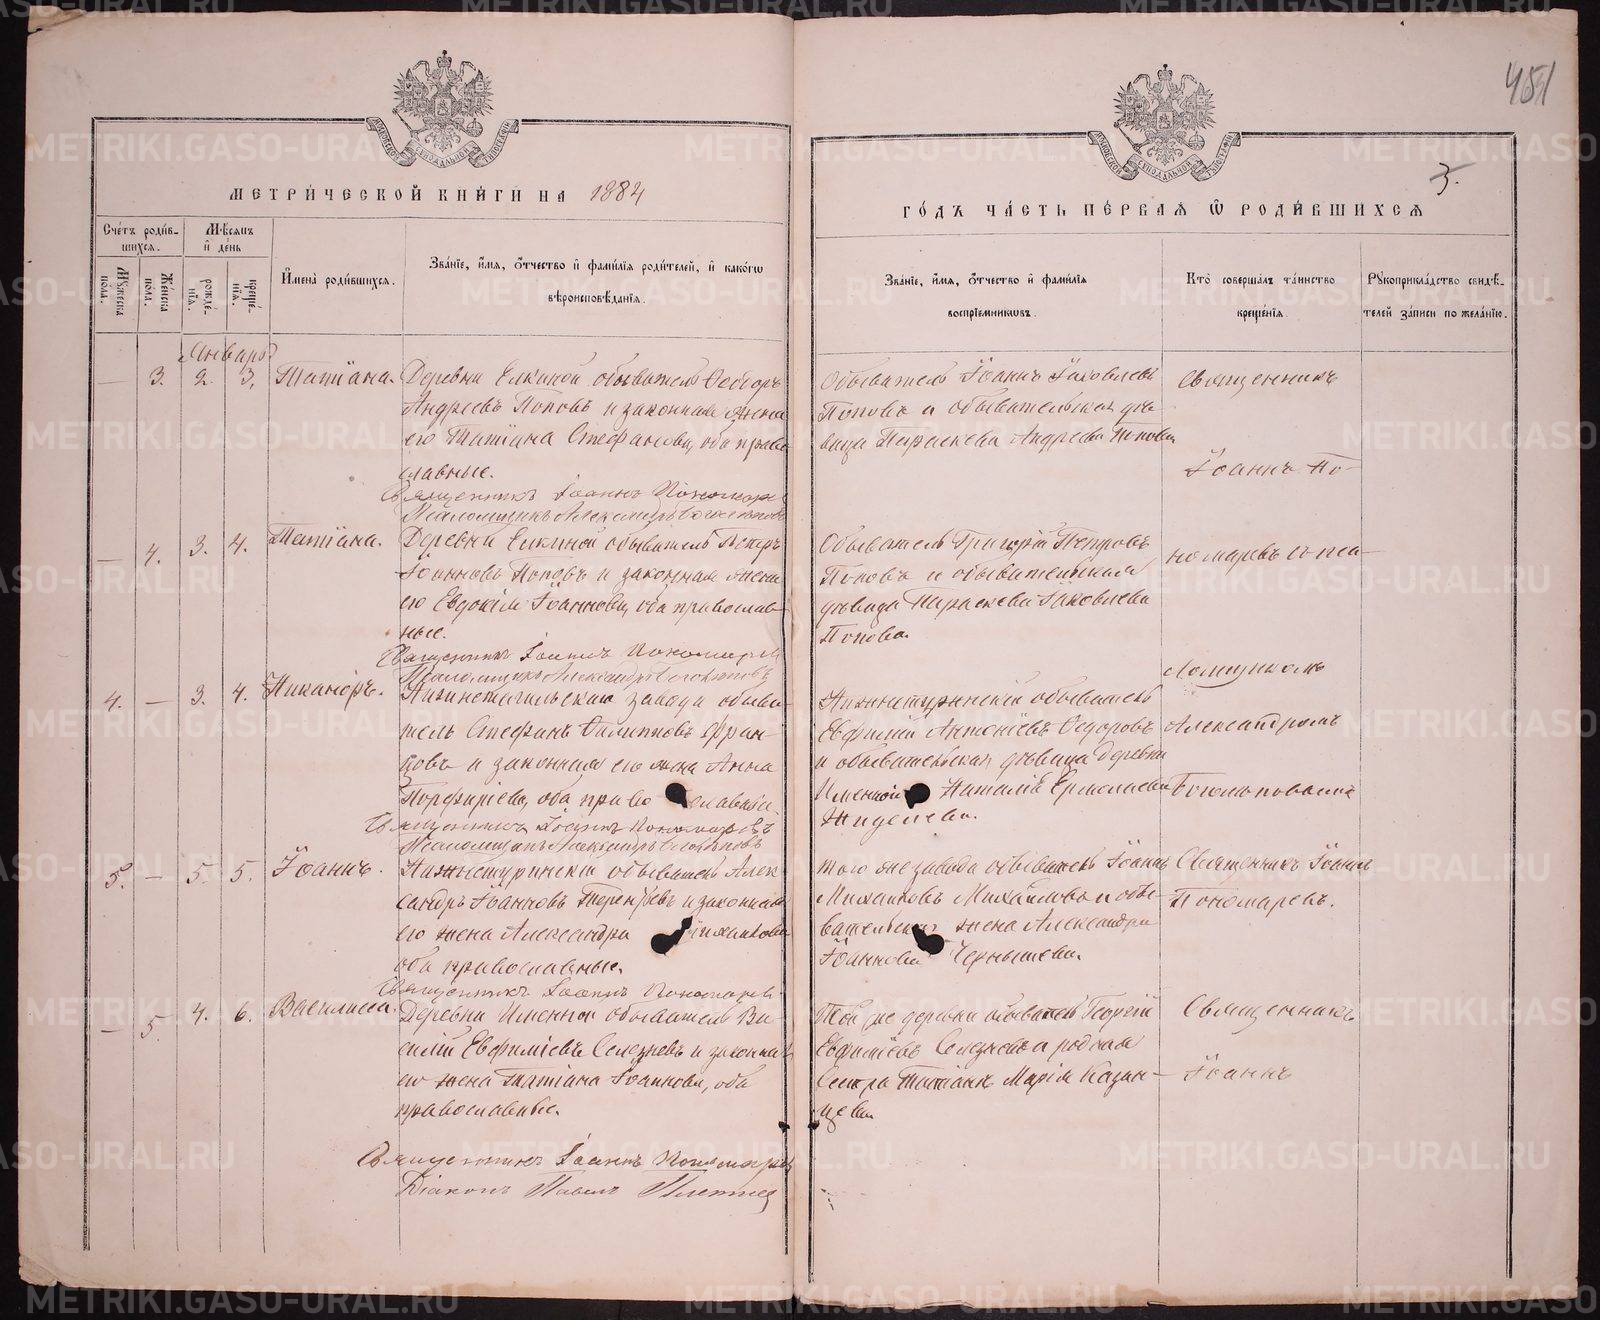 451
5.
МЕТРИ́ЧЕСКОЙ КНИ́ГИ НА 1884
ГО́ДЪ ЧА́СТЬ ПЕ́РВАЯ Ѽ РОДИ́ВШИХСЯ
Сче́тъ роди́в-
шихся.
Мѣ́сяцъ
и де́нь
Мꙋ́жеска
пола.
Же́нска
пола.
рожде́-
нїя.
креще́-
нїя.
И҆мена̀ роди́вшихся.
Зва́нїе, и҆́мя, ѻ҆́тчество и҆ фами́лїя роди́телей, и҆ како́гѡ
вѣроисповѣ́данїя.
Зва́нїе, и҆́мя, ѻ҆́тчество и҆ фами́лїя
воспрїе́мникѡвъ.
Кто̀ соверша́лъ та́инство
креще́нїя.
Рꙋкоприкла́дство свидѣ́-
телей за́писи по жела́нїю.
Январь
— 3. 2. 3. Татіана.
Деревни Елкиной обыватель Ѳеодоръ
Андреевъ Поповъ и законная жена
его Татіана Стефанова, оба право
славные.
Священникъ Іоаннъ Пономаревъ
Псаломщикъ Александръ Боголѣповъ
Обыватель Іоаннъ Іаковлевъ
Поповъ и обывательская дѣ
вица Параскева Андреева Попова
Священникъ
Іоаннъ По-
— 4. 3. 4. Татіана.
Деревни Елкиной обыватель Петръ
Іоанновъ Поповъ и законная жена
его Евдокія Іоаннова, оба православ-
ные.
Священникъ Іоаннъ Пономарев
Псаломщикъ Александръ Боголѣповъ
Обыватель Григорій Петровъ
Поповъ и обывательская
дѣвица Параскева Іаковлева
Попова.
номаревъ съ пса-
ломщикомъ
4. — 3. 4. Никаноръ.
Нижнетагильскаго завода обыва-
тель Стефанъ Филипповъ
и законная его жена Анна
Порфиріева, оба право славные
Священникъ Іоаннъ Пономаревъ
Псаломщикъ Александръ Боголѣповъ
Нижнетуринскій обыватель
Евфимій Антоніевъ Ѳедоровъ
и обывательская дѣвица деревни
Именной Наталія Ермолаева
Александромъ
Боголѣповымъ
5. — 5. 5. Іоаннъ.
Нижнетуринскій обыватель Алек-
сандръ Іоанновъ Терентьевъ и законная
его жена Александра
оба православные.
Священникъ Іоаннъ Пономарев
того же завода обыватель Іоаннъ
Михаиловъ Михайловъ и обы-
вательская жена Александра
Іоаннова Чернышева.
Священникъ Іоаннъ
Пономаревъ.
— 5 4. 6. Василиса.
Деревни Именной обыватель Ва-
силій Евфиміевъ Селезневъ и законная
его жена Татіана Іоаннова, оба
православные.
Священникъ Іоаннъ Пономарев
Діаконъ Павелъ
Той же деревни обыватель Георгій
Евфиміевъ Селезневъ и родная
Сестра Маріа Казан-
цева.
Священникъ
Іоаннъ
METRIKI.GASO-URAL.RU